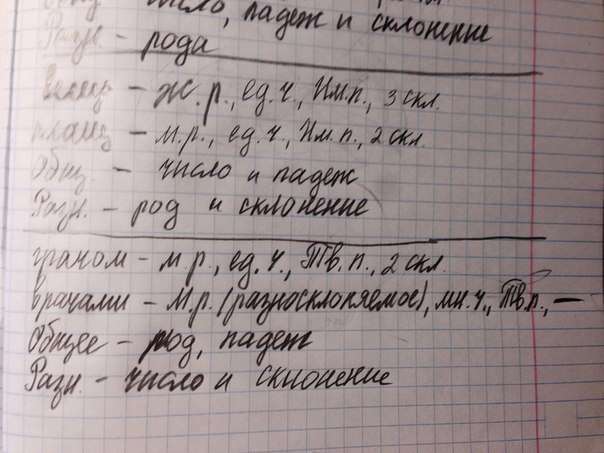 число, падеж и склонение
Разн. - рода
- ж.р., ед.ч., Им.п., 3 скл.
плащ - м.р., ед.ч., Им.п., 2 скл.
Общ. - число и падеж
Разн. - род и склонение
грачом - м.р., ед.ч., Тв.п., 2 скл.
врачами - м.р. (разносклоняемое), мн.ч., Тв.п., —
Общее - род, падеж
Разн. - число и склонение